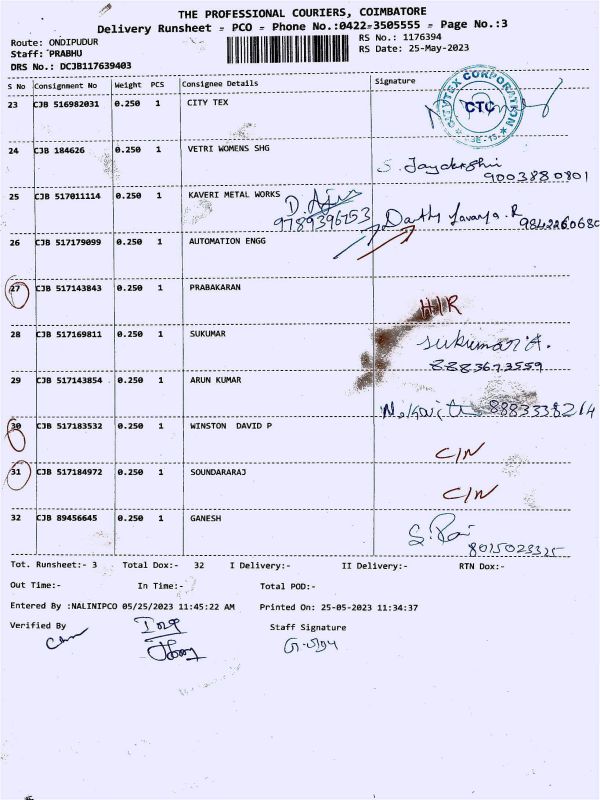 THE PROFESSIONAL COURIERS, COIMBATORE
Delivery Runsheet - PCO - Phone No.:0422-3505555 - Page No.:3
Route: ONDIPUDUR
RS No.: 1176394
Staff: PRABHU
RS Date: 25-May-2023
DRS No.: DCJB117639403
S No Consignment No Weight PCS Consignee Details Signature
23 CJB 516982031 0.250 1 CITY TEX
CITYTEX CORPORATION
CTC
24 CJB 184626 0.250 1 VETRI WOMENS SHG
9003880801
25 CJB 517011114 0.250 1 KAVERI METAL WORKS
9789396753
26 CJB 517179099 0.250 1 AUTOMATION ENGG
27 CJB 517143843 0.250 1 PRABAKARAN
H/R
28 CJB 517169811 0.250 1 SUKUMAR
Sukumar A.
8883673559
29 CJB 517143854 0.250 1 ARUN KUMAR
8883338214
30 CJB 517183532 0.250 1 WINSTON DAVID P
C/N
31 CJB 517184972 0.250 1 SOUNDARARAJ
C/N
32 CJB 89456645 0.250 1 GANESH
8015023325
Tot. Runsheet:- 3 Total Dox:- 32 I Delivery:- II Delivery:- RTN Dox:-
Out Time:- In Time:- Total POD:-
Entered By :NALINIPCO 05/25/2023 11:45:22 AM Printed On: 25-05-2023 11:34:37
Verified By Staff Signature